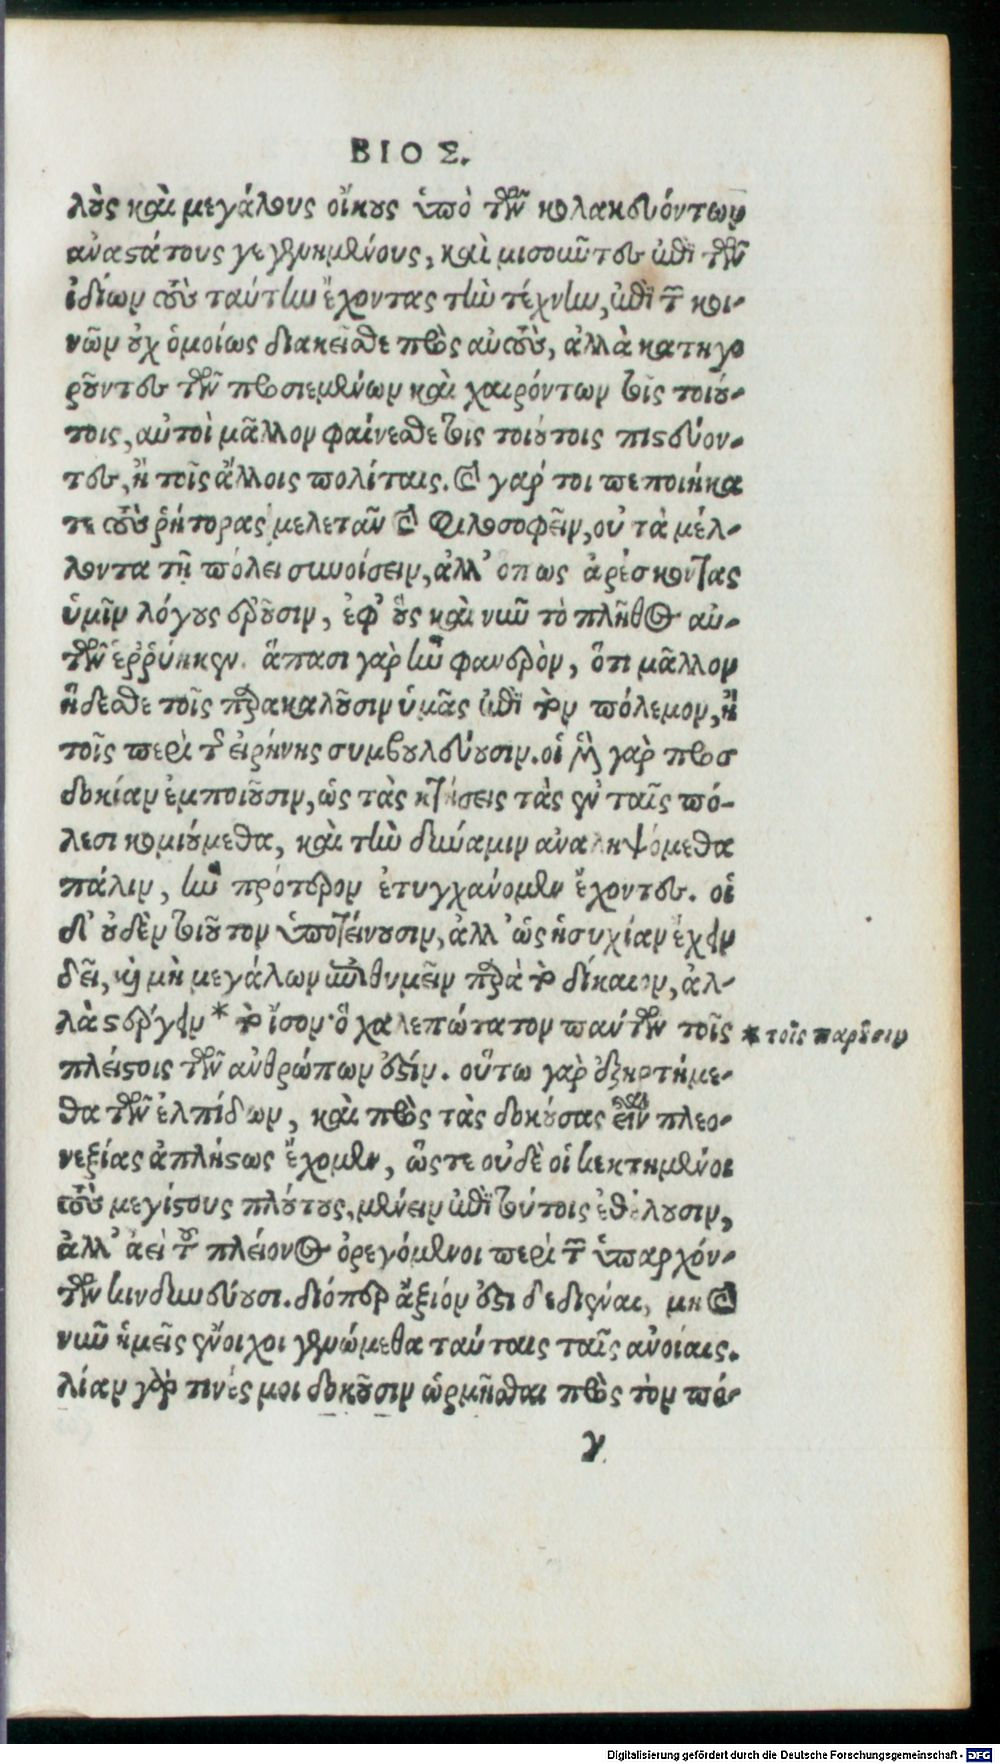 ΒΙΟΣ.
λοὺς καὶ μεγάλους οἴκους ὑπὸ τῶν κολακευόντων
ἀναστάτους γεγενημένους, καὶ μισοῦντες ἐπὶ τῶν
ἰδίων τοὺς ταύτην ἔχοντας τὴν τέχνην, ἐπὶ τῶν κοι-
νῶν οὐχ ὁμοίως διάκεισθε πρὸς αὐτοὺς, ἀλλὰ κατηγο
ροῦντες τῶν προσιεμένων καὶ χαιρόντων τοῖς τοιού-
τοις, αὐτοὶ μᾶλλον φαίνεσθε τοῖς τοιούτοις πιστεύον-
τες, ἢ τοῖς ἄλλοις πολίταις. καὶ γάρ τοι πεποιήκα
τε τοὺς ῥήτορας μελετᾶν καὶ φιλοσοφεῖν, οὐ τὰ μέλ-
λοντα τῇ πόλει συνοίσειν, ἀλλ' ὅπως ἀρέσκοντας
ὑμῖν λόγους ἐροῦσιν, ἐφ' οὓς καὶ νῦν τὸ πλῆθος αὐ-
τῶν ἐρρύηκεν. ἅπασι γὰρ ἦν φανερὸν, ὅτι μᾶλλον
ἥδεσθε τοῖς παρακαλοῦσιν ὑμᾶς ἐπὶ τὸν πόλεμον, ἢ
τοῖς περὶ τῆς εἰρήνης συμβουλεύουσιν. οἱ μὲν γὰρ προσ
δοκίαν ἐμποιοῦσιν, ὡς τὰς κτήσεις τὰς ἐν ταῖς πό-
λεσι κομιούμεθα, καὶ τὴν δύναμιν ἀναληψόμεθα
πάλιν, ἣν πρότερον ἐτυγχάνομεν ἔχοντες. οἱ
δ' οὐδὲν τοιοῦτον ὑποτείνουσιν, ἀλλ' ὡς ἡσυχίαν ἔχειν
δεῖ, καὶ μὴ μεγάλων ἐπιθυμεῖν παρὰ τὸ δίκαιον, ἀλ-
λὰ στέργειν * τὸ ἴσον· ὃ χαλεπώτατον πάντων τοῖς
* τοῖς παροῦσιν
πλείστοις τῶν ἀνθρώπων ἐστίν. οὕτω γὰρ ἐξηρτήμε-
θα τῶν ἐλπίδων, καὶ πρὸς τὰς δοκούσας εἶναι πλεο-
νεξίας ἀπλήστως ἔχομεν, ὥστε οὐδὲ οἱ κεκτημένοι
τοὺς μεγίστους πλούτους, μένειν ἐπὶ τούτοις ἐθέλουσιν,
ἀλλ' ἀεὶ τοῦ πλείονος ὀρεγόμενοι περὶ τῶν ὑπαρχόν-
των κινδυνεύουσι. διόπερ ἄξιόν ἐστι δεδιέναι, μὴ καὶ
νῦν ἡμεῖς ἔνοχοι γενώμεθα ταύταις ταῖς ἀνοίαις.
λίαν γάρ τινές μοι δοκοῦσιν ὡρμῆσθαι πρὸς τὸν πό-
γ
Digitalisierung gefördert durch die Deutsche Forschungsgemeinschaft - DFG